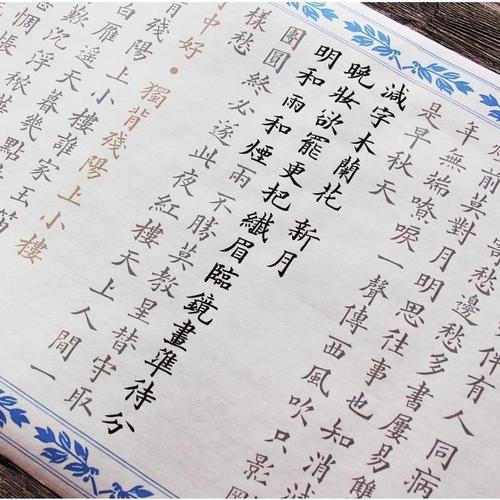 伴有人同病
愁邊愁多書屢易雙
前莫對月明思往事也知消減
年無端嘹唳一聲傳西風吹只影
是早秋天
減字木蘭花 新月
晚妝欲罷更把纖眉臨鏡畫準待分
明和雨和煙兩不勝莫教星替守取
團圓終必遂此夜紅樓天上人間一
樣愁
中好·獨背殘陽上小樓
背殘陽上小樓誰家玉笛
白雁遙天暮幾點
歎沉浮秾華
惆悵